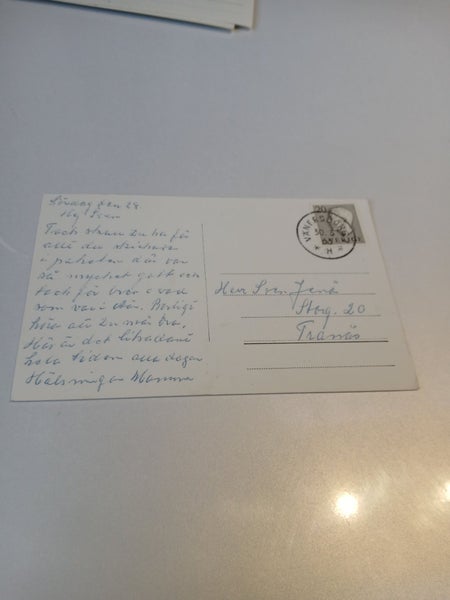 Söndag den 29
Hej Sven
Tack skall du ha för
allt du skickade
i paketen det var
så mycket gott och
tack för brev o vad
som vari där. Roligt
höra att du mår bra.
Här är det
hela tiden alla dagar
Hälsningar Mamma
20
VÄNERSBORG
30.
* H *
Herr Sven
Storg. 20
Tranås